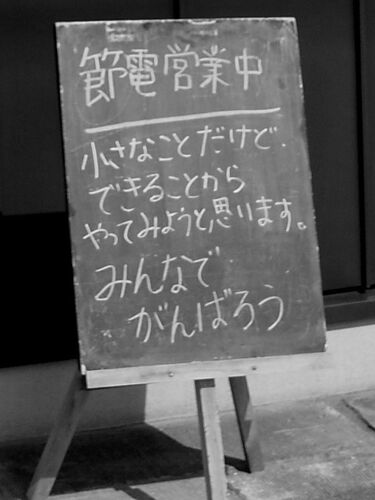 節電営業中
小さなことだけど.
できることから
やってみようと思います。
みんなで
がんばろう